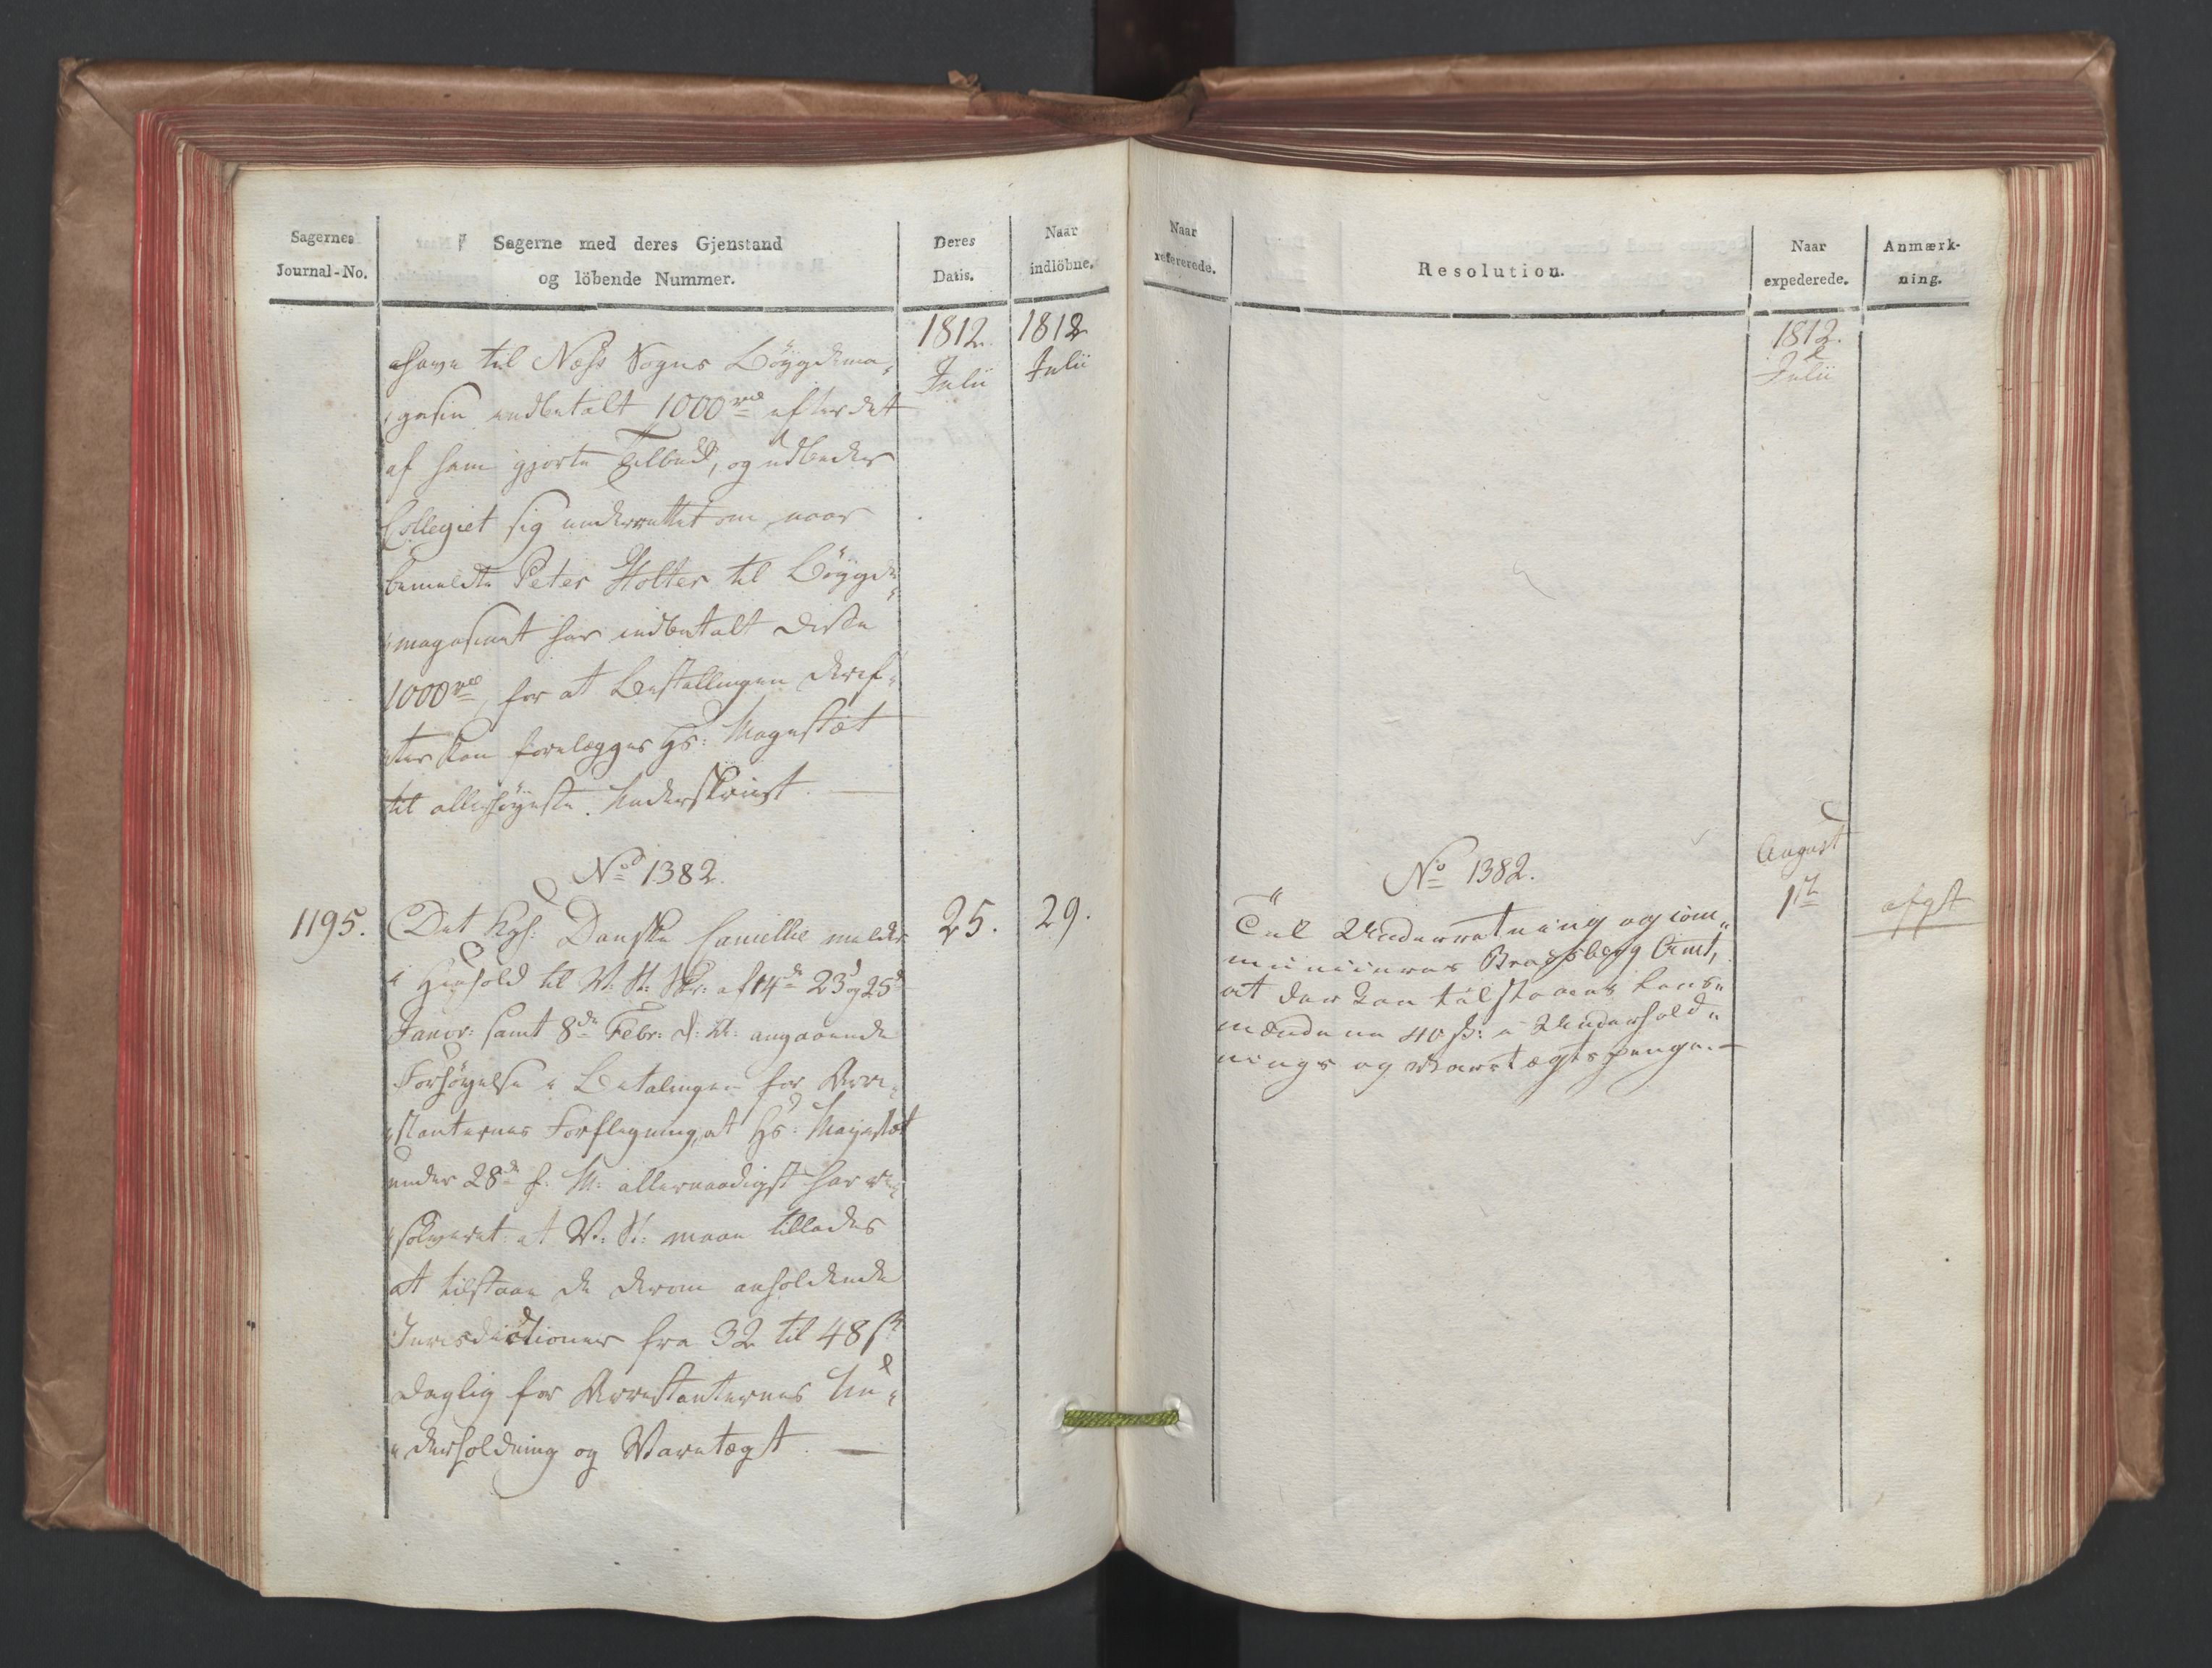 Sagernes
Journal-No.
Sagerne med deres Gjenstand
og löbende Nummer.
Deres
Datis.
Naar
indlöbne.
1812.
Julii
1812
Julii
have til Næss SognsBöÿgdema„
„gasin indbetalt 1000 rd efter det
af ham gjorte Tilbud, og udbeder
Collegiet sig underrettet om, naar
bemeldte Peter Holter til Böÿgde„
„magasinet har indbetalt disse
1000 rd, for at Bestallingen deref„
„ter kan forelægges Hs: Majestæt
til allerhöÿeste Underskrivt. —
No 1382.
1195.
Det Kgl: Danske Cancellie melder
i Henhold til V: St: Skr: af 14de 23d og 25d
Janvr: samt 8de Febr: d: A: angaaende
Forhöÿelse i Betalingen for Arre„
„stanternes Forflegning, at Hs: Majestæt
under 28de f: M: allernaadigst har re„
„solveret: at V: St: maae tillades
at tilstaae de derom anholdende
Jurisdictioner fra 32 til 48 s
daglig for Arrestanternes Un„
„derholdning og Varetægt. —
25.
29.
Naar
refererede.
Resolution.
Naar
expederede.
Anmærk-
ning.
1812.
Julii
No 1382.
Til Underretning og com„
municeres Bradsberg Amt,
at der kan tilstaaes Lens„
mændene 40 s: i Underhold„
nings og Varetægtspenge. —
August
1ste
afgt